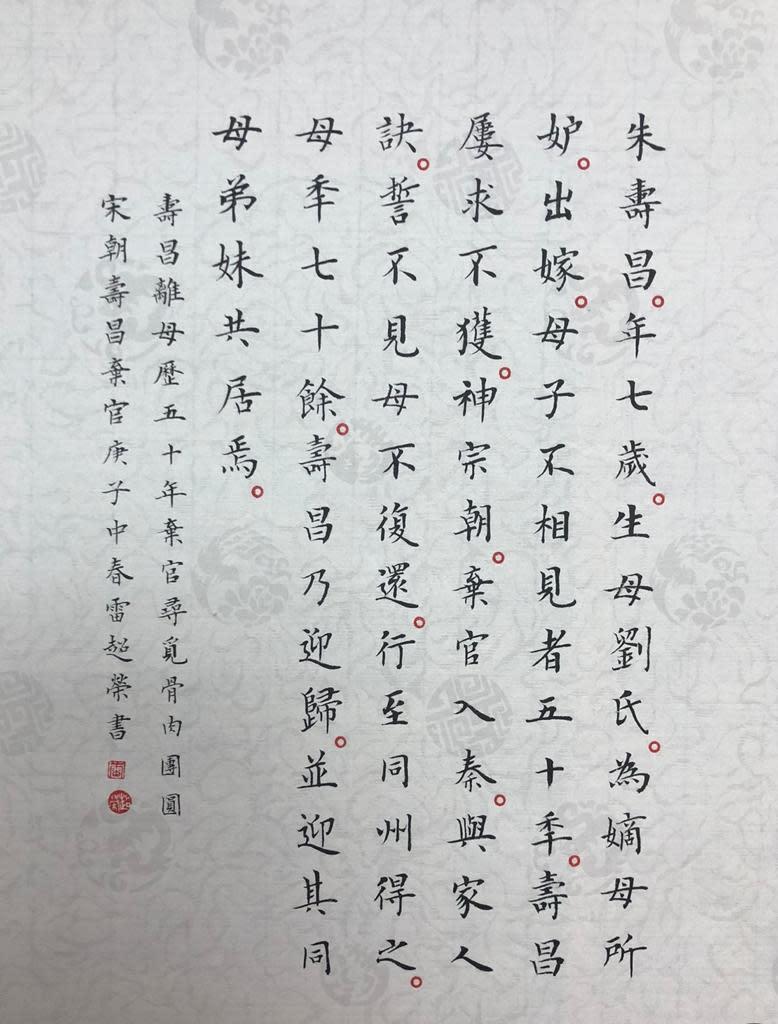 朱壽昌。年七歲。生母劉氏。為嫡母所
妒。出嫁。母子不相見者五十季。壽昌
屢求不獲。神宗朝。棄官入秦。與家人
訣。誓不見母不復還。行至同州得之。
母季七十餘。壽昌乃迎歸。並迎其同
母弟妹共居焉。
壽昌離母歷五十年棄官尋覓骨肉團圓
宋朝壽昌棄官庚子中春雷超榮書